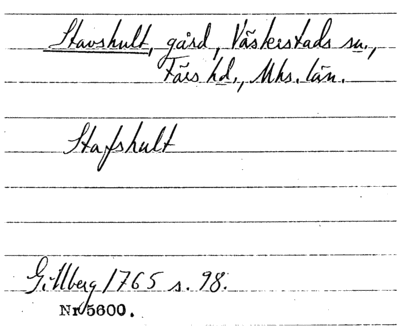 Stavshult, gård, Väskerstads sn.,
Färs hd., Mhs. län.
Stafshult
Gillberg 1765 s. 98.
Nr 5600.